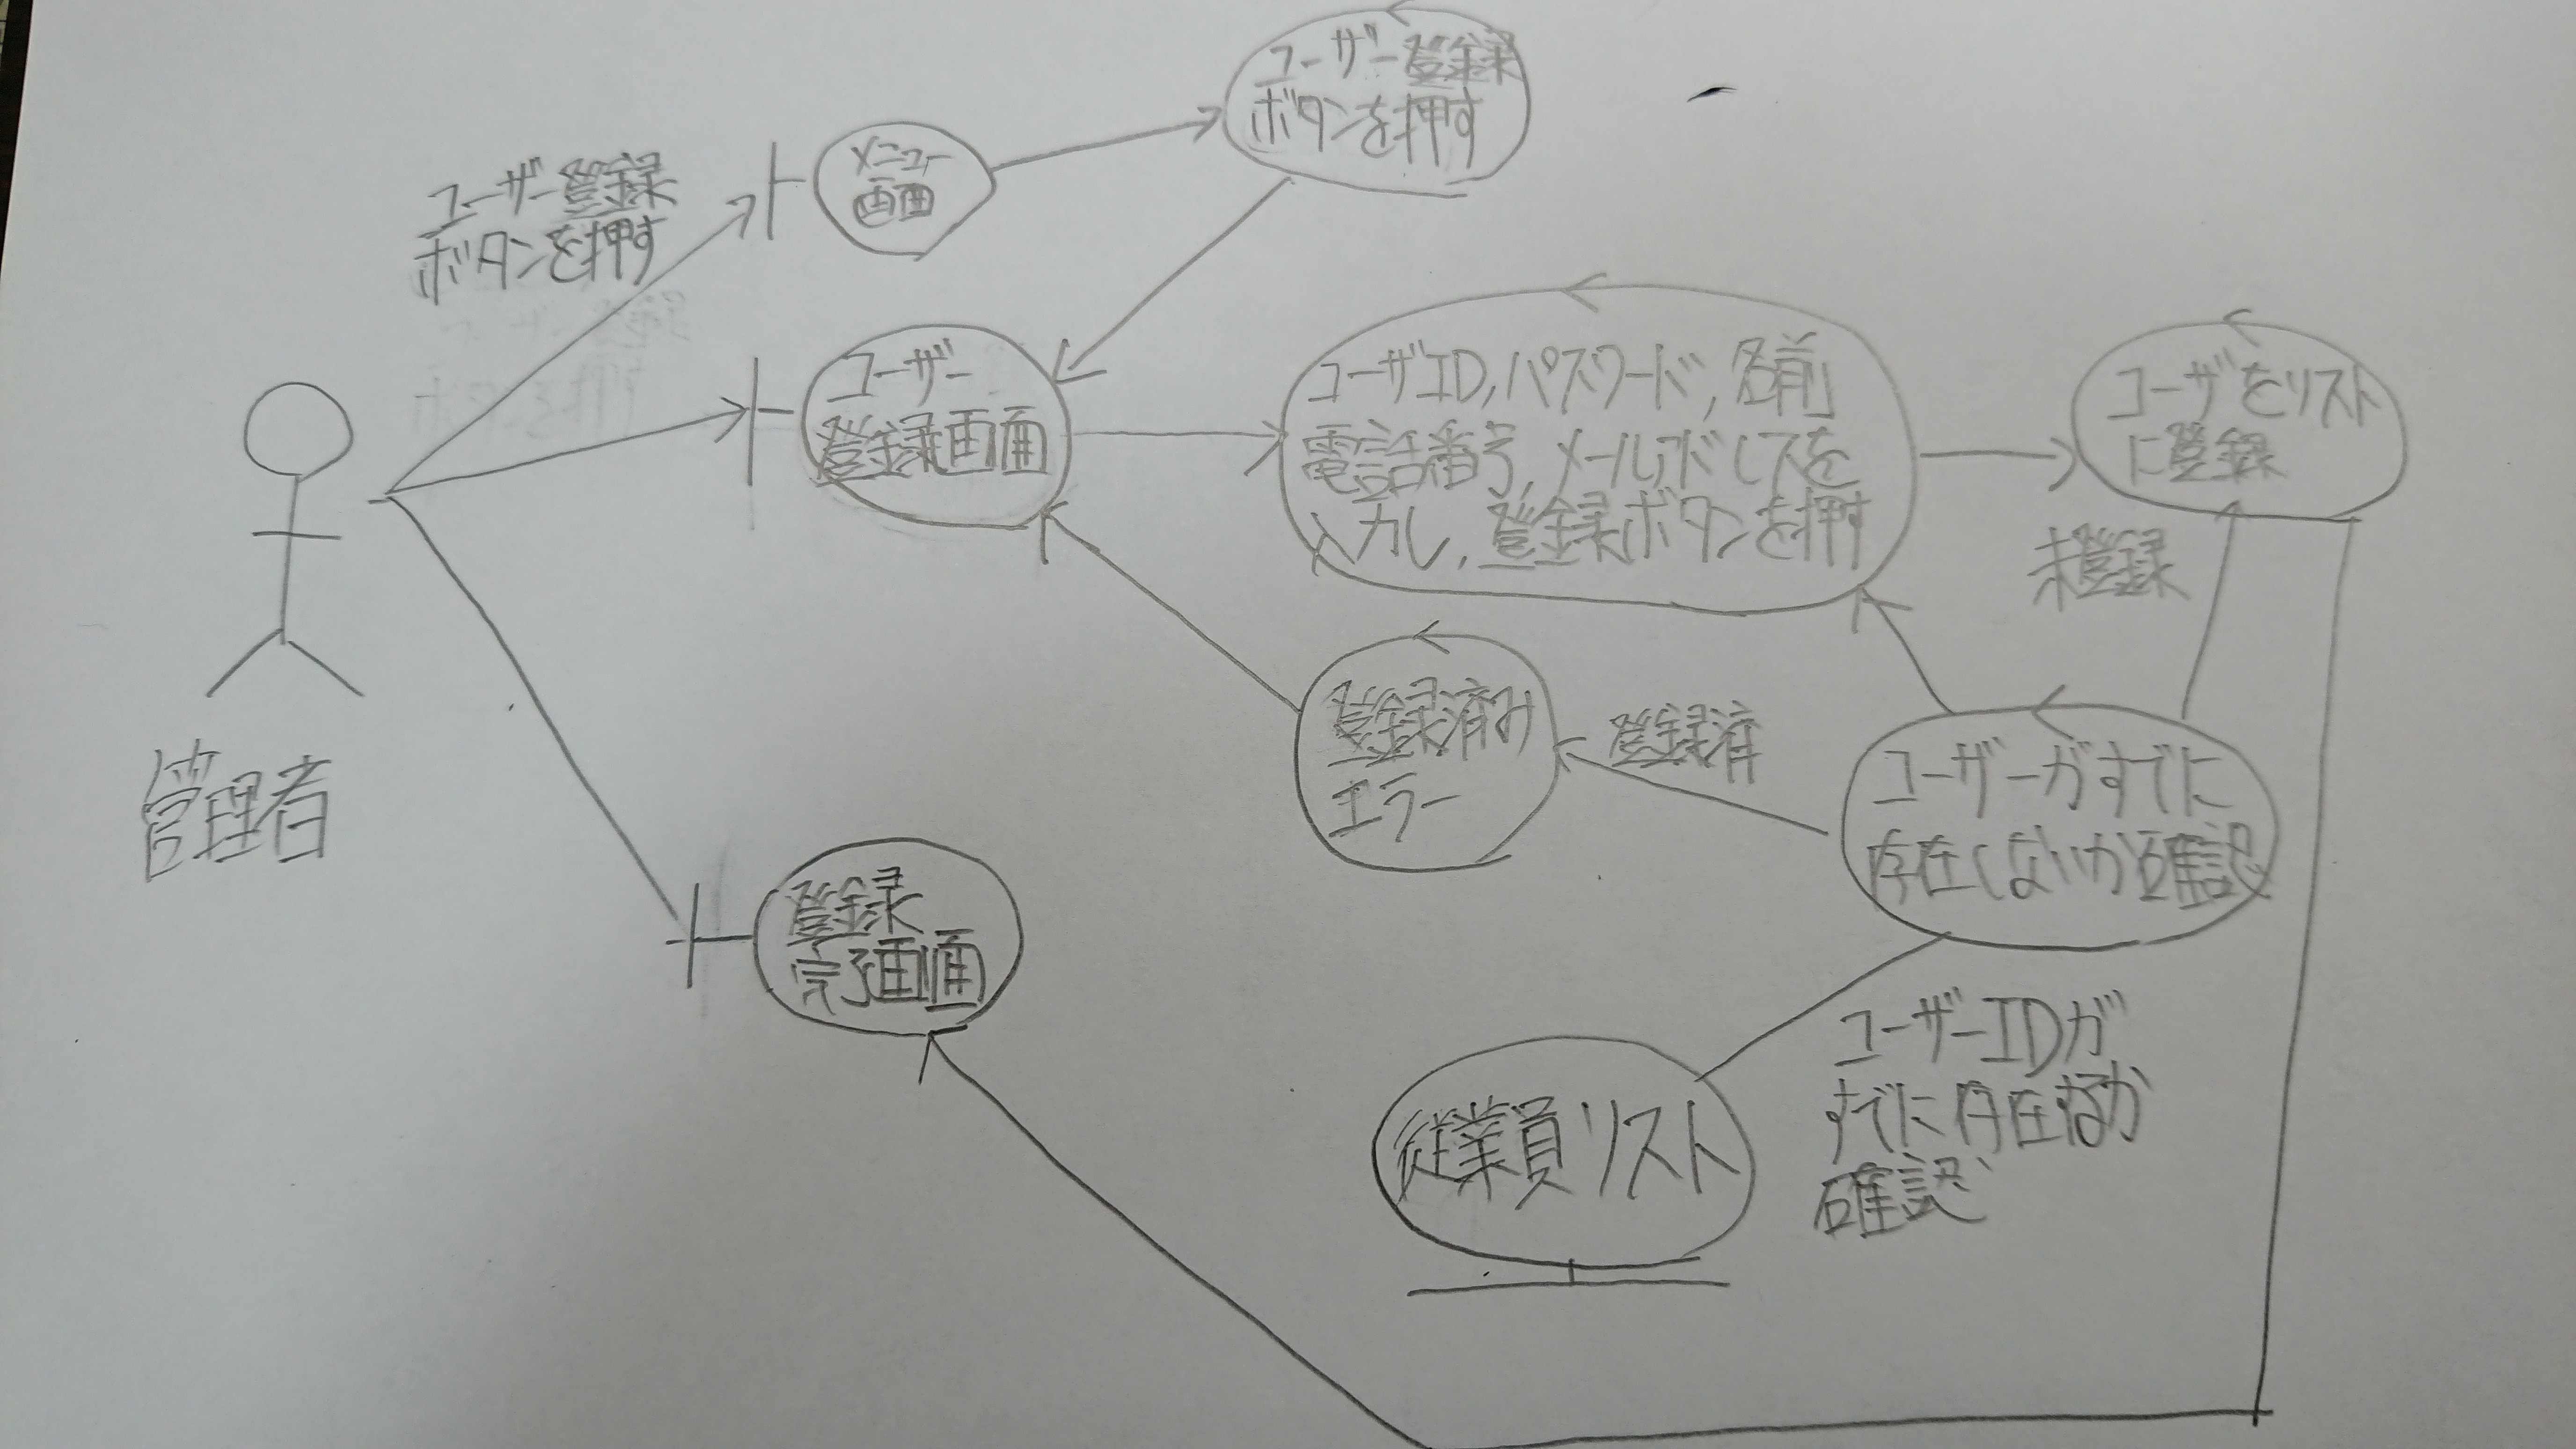 ユーザー登録
ボタンを押す
メニュー
画面
ユーザー登録
ボタンを押す
ユーザー
登録画面
ユーザID,パスワード,名前
電話番号,メールアドレスを
入力し,登録ボタンを押す
ユーザをリスト
に登録
未登録
登録済み
エラー
登録済
ユーザーがすでに
存在しないか確認
管理者
登録
完了画面
従業員リスト
ユーザーIDが
すでに存在するか
確認